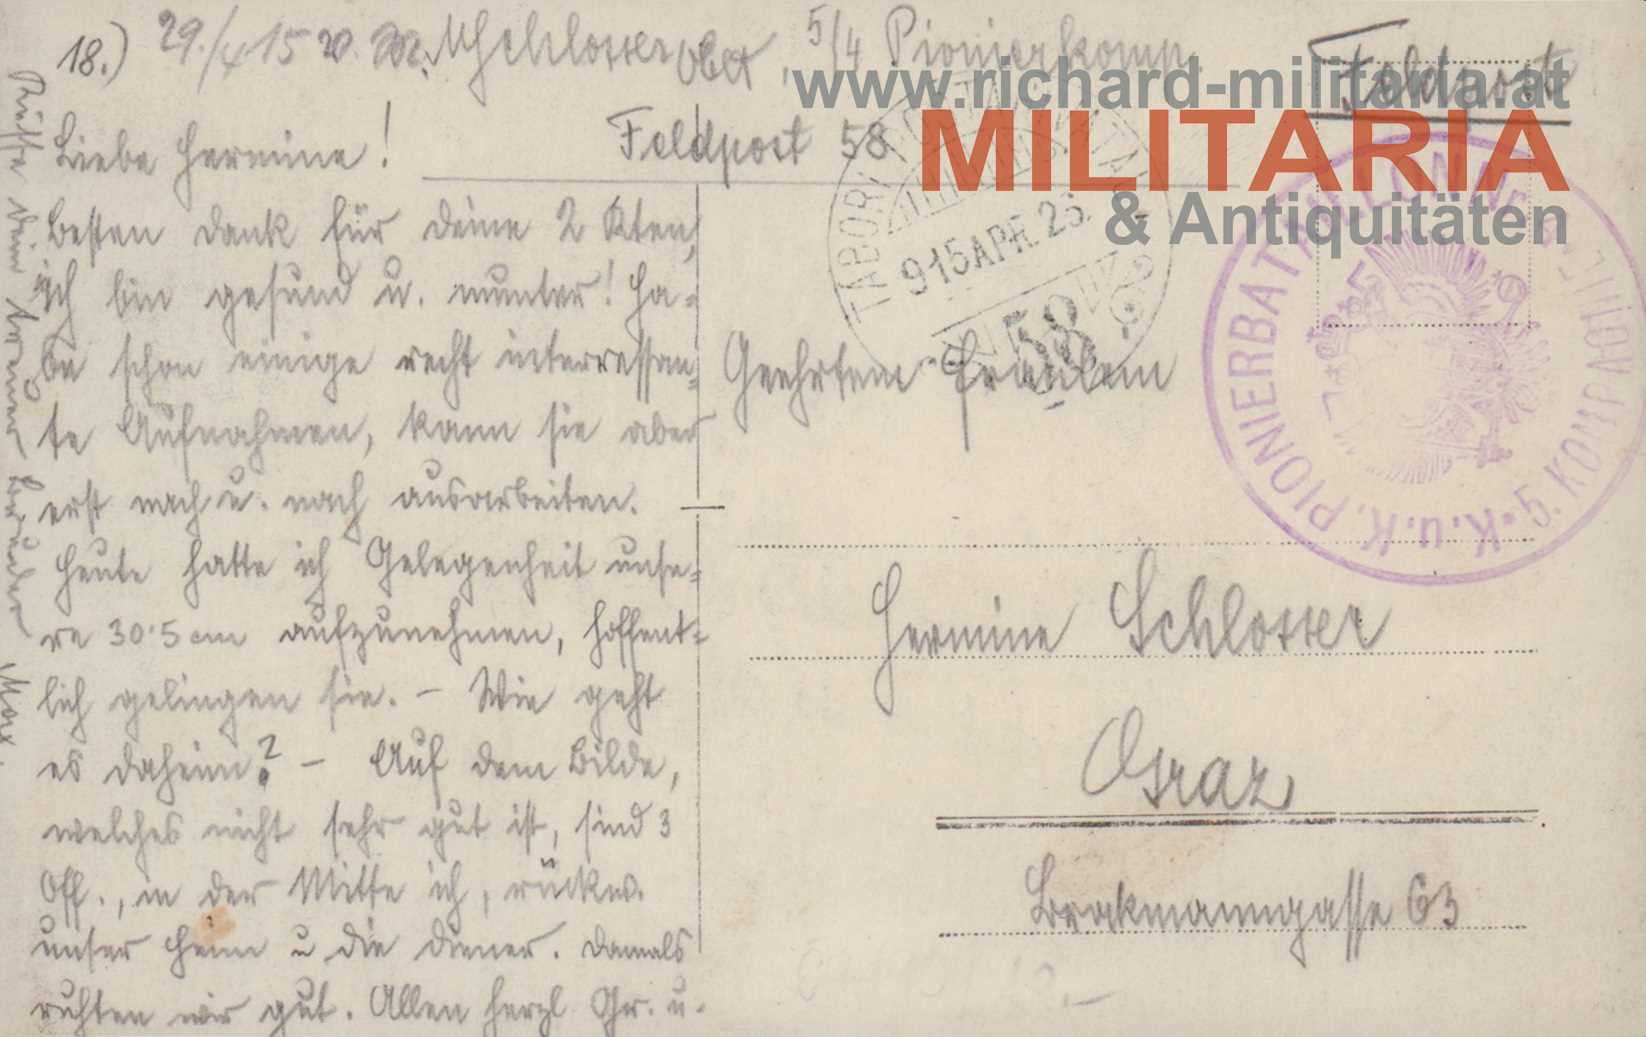 18.) 29./4 15 v. M. Schlosser Oblt, 5/4 Pionierkomp.
Feldpost 58
Feldpost
www.richard-militaria.at
MILITARIA
& Antiquitäten
Liebe Hermine!
Besten Dank für Deine 2 Kten,
ich bin gesund u. munter! Ha-
be schon einige recht interressan-
te Aufnahmen, kann sie aber
erst nach u. nach ausarbeiten.
Heute hatte ich Gelegenheit unse-
re 30·5 cm aufzunehmen, hoffent-
lich gelingen sie. – Wie geht
es daheim? – Auf dem Bilde,
welches nicht sehr gut ist, sind 3
Off., in der Mitte ich, rückw.
unser Heim u die Diener. Damals
ruhten wir gut. Allen herzl Gr. u.
Küsse Dein treuer Bruder Max.
TABORI
915 APR. 23.
58
K.u.K. PIONIERBATAILLON Nr.
5. KOMPAGNIE
Geehrtem Fräulein
Hermine Schlosser
Graz
Brokmanngasse 63